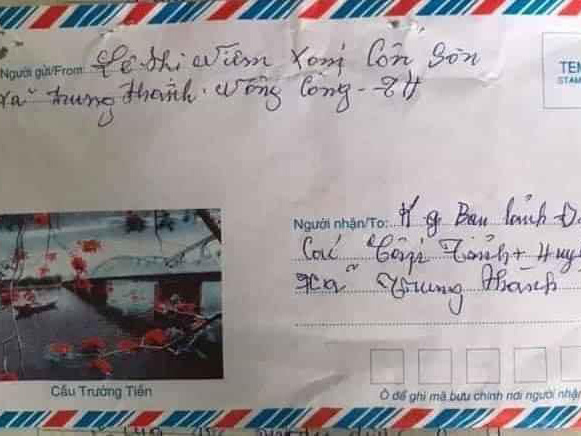 Người gửi/From: Lê Thị Viêm Xóm Côn Sơn
Xã Trung Thành. Nông Cống - TH
TEM
STAM
Người nhận/To: K g Ban lãnh Đ
Các Tỉnh + Huy
Xã Trung Thành
Cầu Trường Tiền
Ô để ghi mã bưu chính nơi người nhận